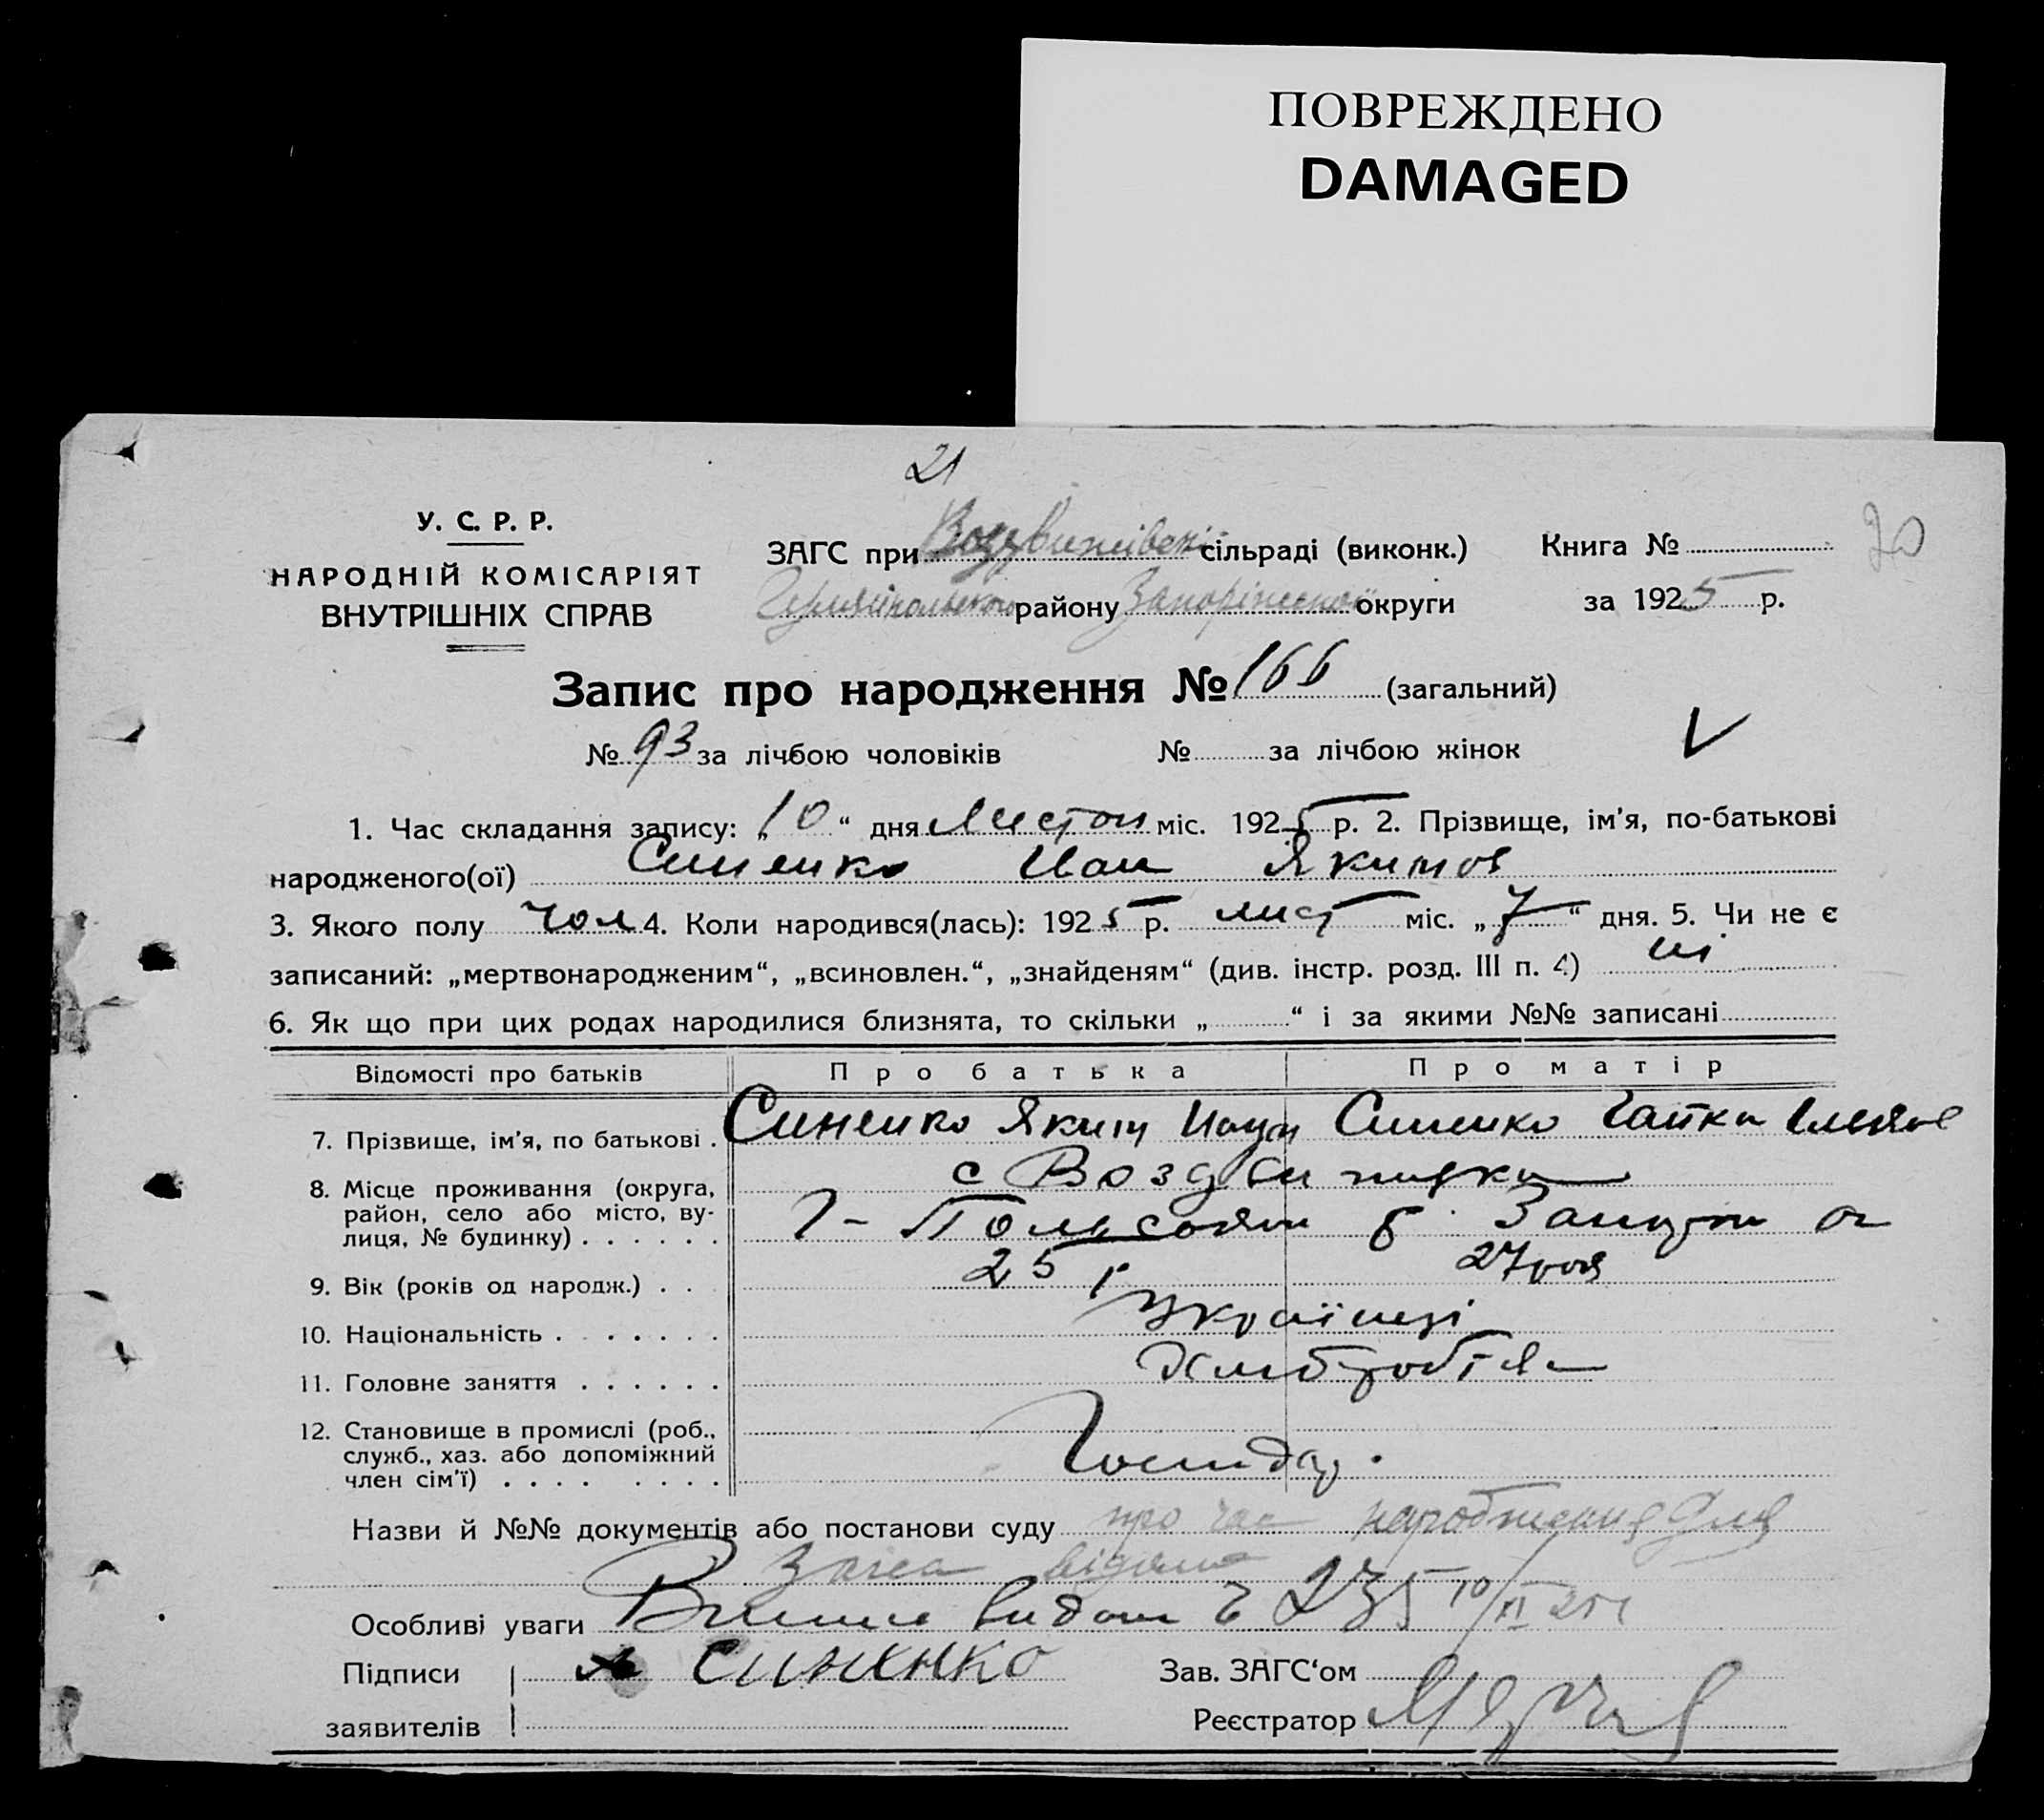 ПОВРЕЖДЕНО
DAMAGED
21
20
У. С. Р. Р.
НАРОДНІЙ КОМІСАРІЯТ
ВНУТРІШНІХ СПРАВ
ЗАГС при Воздвижівські сільраді (виконк.) Книга №
району Запоріжської округи за 1925 р.
Запис про народження № 166 (загальний)
№ 93 за лічбою чоловіків № за лічбою жінок V
1. Час складання запису: „10“ дня Листоп міс. 1925 р. 2. Прізвище, ім'я, по-батькові
народженого(ої) Синенко Іван Якимов
3. Якого полу чол 4. Коли народився(лась): 1925 р. лист міс. „7“ дня. 5. Чи не є
записаний: „мертвонародженим“, „всиновлен.“, „знайденям“ (див. інстр. розд. III п. 4) ні
6. Як що при цих родах народилися близнята, то скільки „ “ і за якими №№ записані
Відомості про батьків Про батька Про матір
7. Прізвище, ім'я, по батькові . Синенко Яким Синенко Гапка
8. Місце проживання (округа, с Воздвижівка
район, село або місто, ву-
лиця, № будинку) . . . . . .
9. Вік (років од народж.) . . 25 р 27 ров
10. Національність . . . . . . . Українці
11. Головне заняття . . . . . . Хліборобтв
12. Становище в промислі (роб.,
служб., хаз. або допоміжний Господар.
член сім'ї) . . . . . . . .
Назви й №№ документів або постанови суду про час народження для
Загса відома
Особливі уваги видан 235 10/XI 25
Підписи Синенко Зав. ЗАГС'ом
заявителів Реєстратор